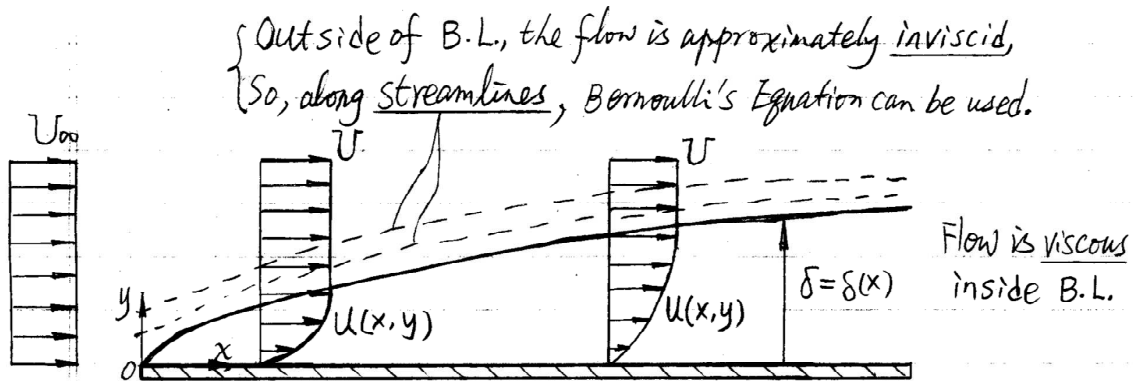 Outside of B.L., the flow is approximately inviscid,
So, along streamlines, Bernoulli's Equation can be used.
U∞
U
U
Flow is viscous
inside B.L.
δ=δ(x)
y
u(x,y)
u(x,y)
x
0